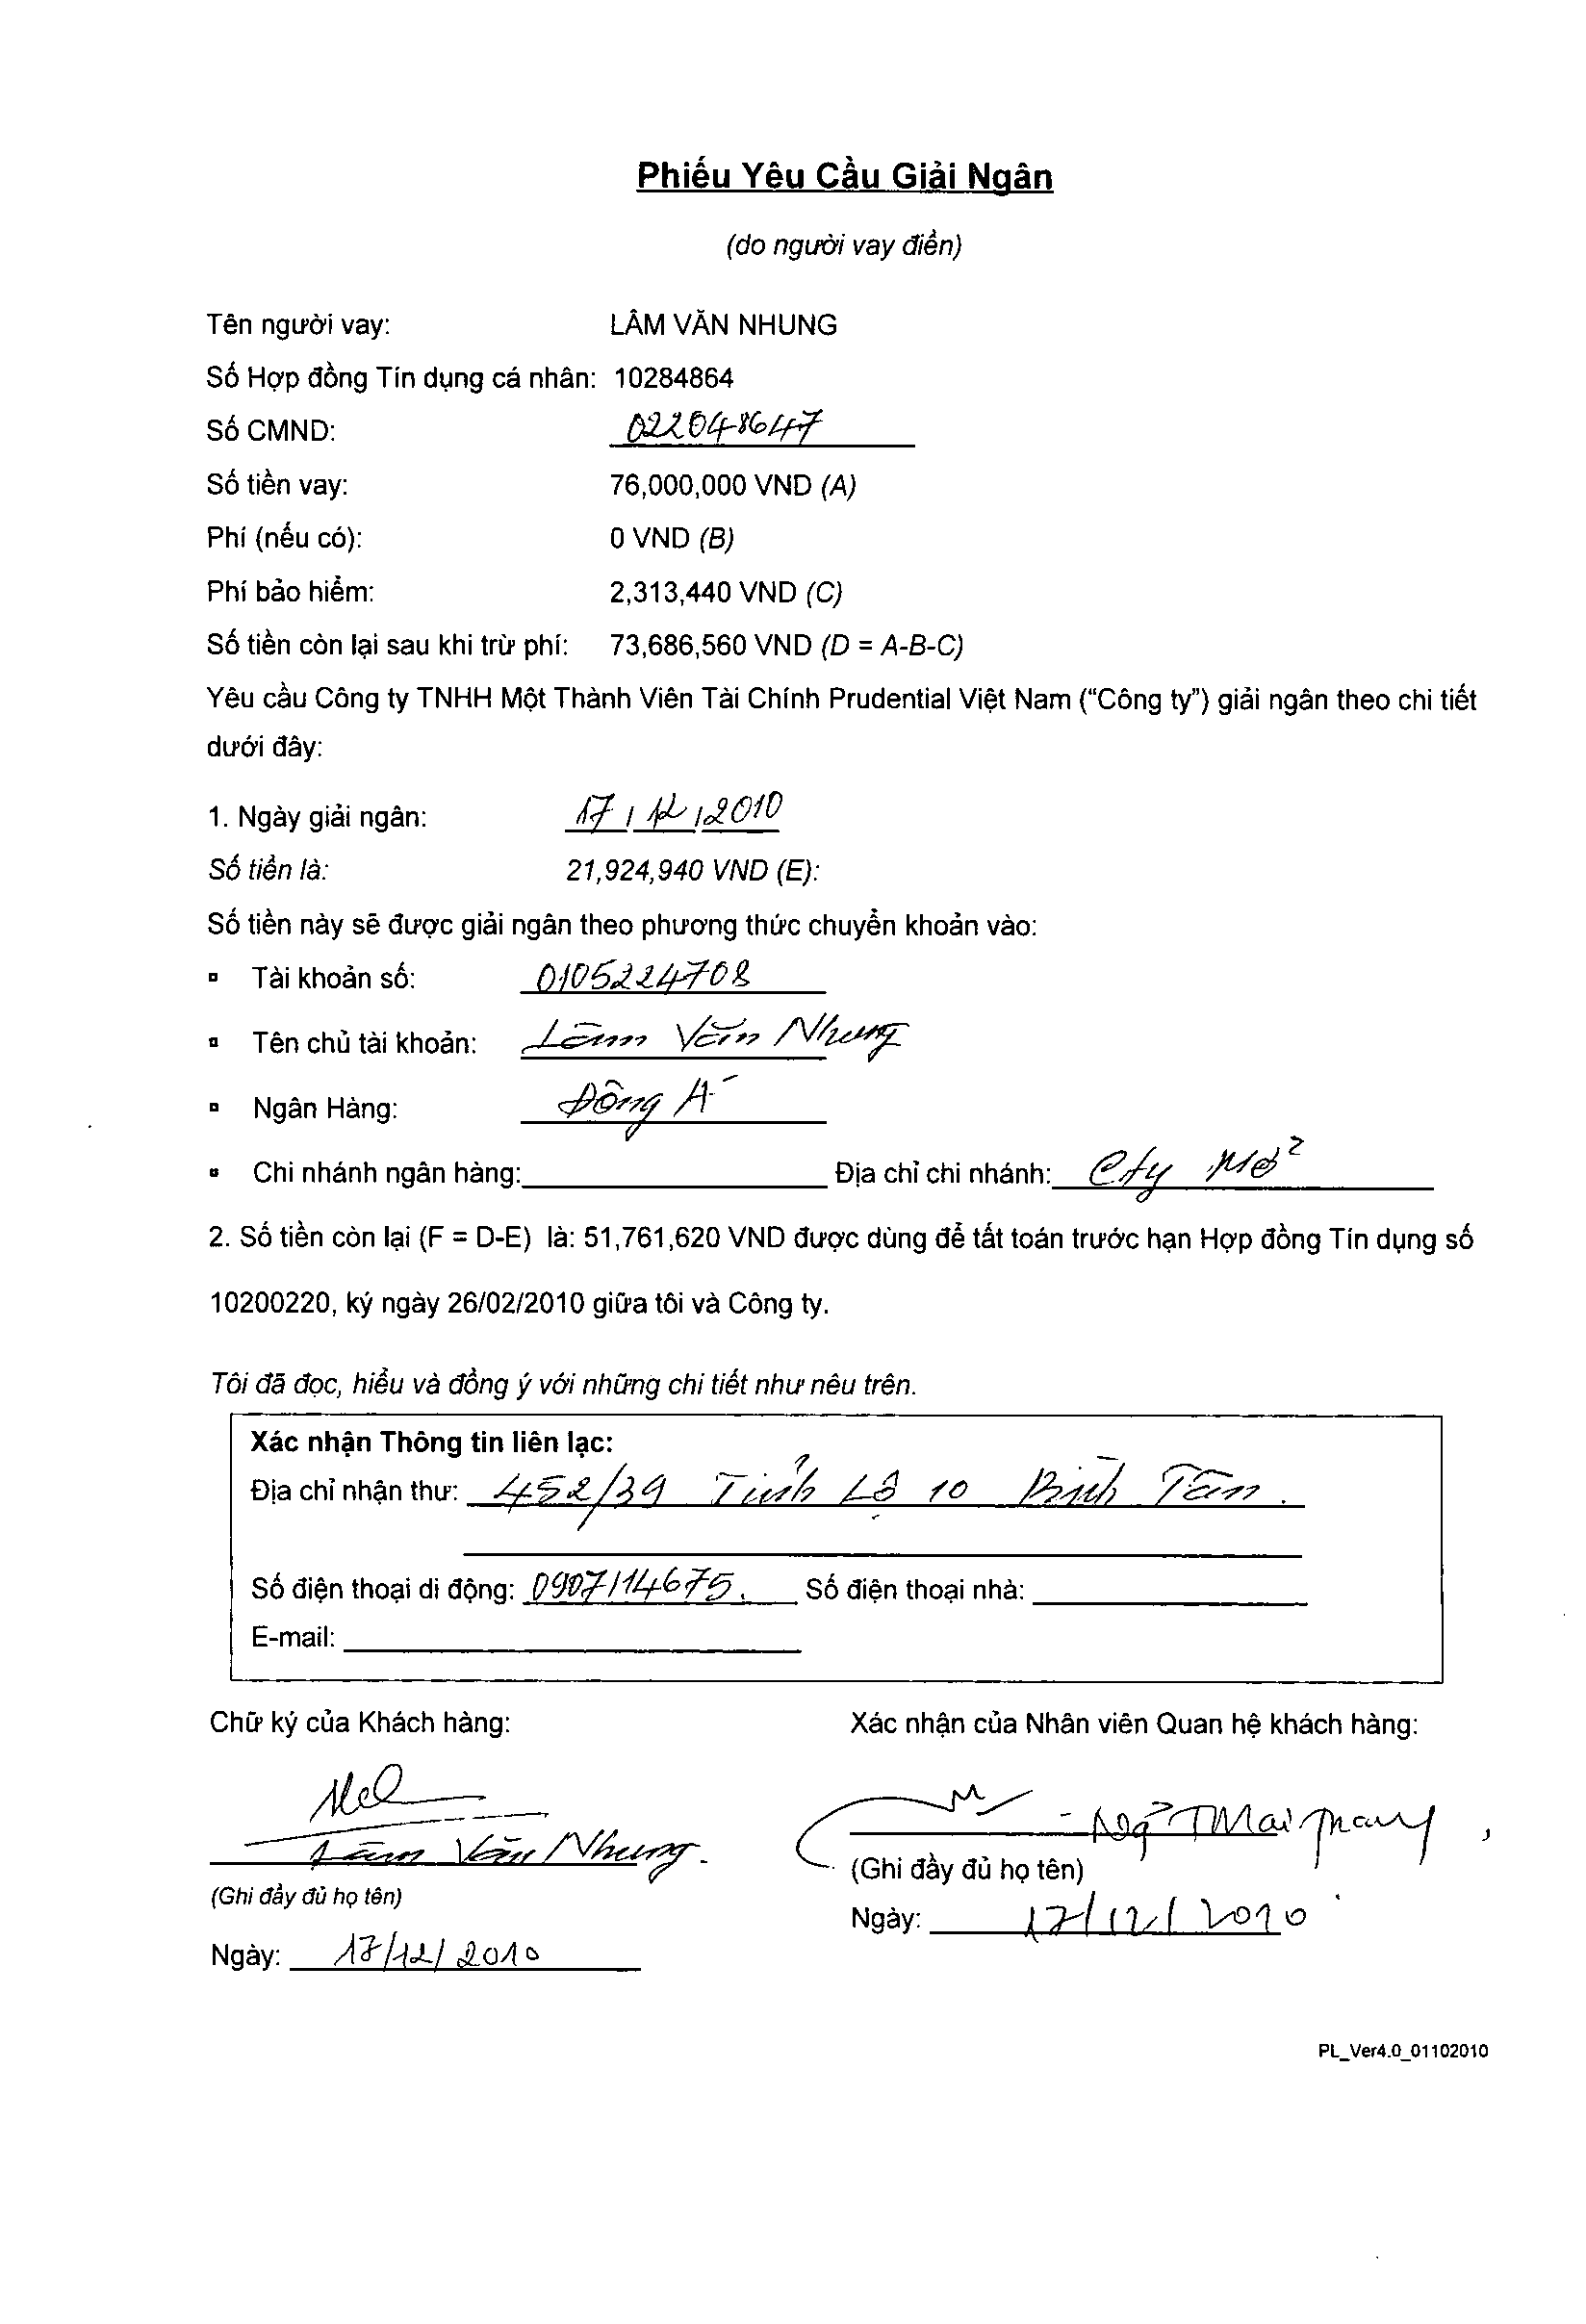 Phiếu Yêu Cầu Giải Ngân
(do người vay điền)
Tên người vay: LÂM VĂN NHUNG
Số Hợp đồng Tín dụng cá nhân: 10284864
Số CMND: 022048647
Số tiền vay: 76,000,000 VND (A)
Phí (nếu có): 0 VND (B)
Phí bảo hiểm: 2,313,440 VND (C)
Số tiền còn lại sau khi trừ phí: 73,686,560 VND (D = A-B-C)
Yêu cầu Công ty TNHH Một Thành Viên Tài Chính Prudential Việt Nam (“Công ty”) giải ngân theo chi tiết
dưới đây:
1. Ngày giải ngân: 17/12/2010
Số tiền là: 21,924,940 VND (E):
Số tiền này sẽ được giải ngân theo phương thức chuyển khoản vào:
▫ Tài khoản số: 0105224708
▫ Tên chủ tài khoản: Lâm Văn Nhung
▫ Ngân Hàng: Đông Á
▫ Chi nhánh ngân hàng: Địa chỉ chi nhánh: Cty
2. Số tiền còn lại (F = D-E) là: 51,761,620 VND được dùng để tất toán trước hạn Hợp đồng Tín dụng số
10200220, ký ngày 26/02/2010 giữa tôi và Công ty.
Tôi đã đọc, hiểu và đồng ý với những chi tiết như nêu trên.
Xác nhận Thông tin liên lạc:
Địa chỉ nhận thư: 452/39 Tỉnh Lộ 10 Bình Tân.
Số điện thoại di động: 0907114675. Số điện thoại nhà:
E-mail:
Chữ ký của Khách hàng: Xác nhận của Nhân viên Quan hệ khách hàng:
Lâm Văn Nhung. Ngô T Mai Trang
(Ghi đầy đủ họ tên) (Ghi đầy đủ họ tên)
Ngày: 17/12/2010 Ngày: 17/12/2010
PL_Ver4.0_01102010